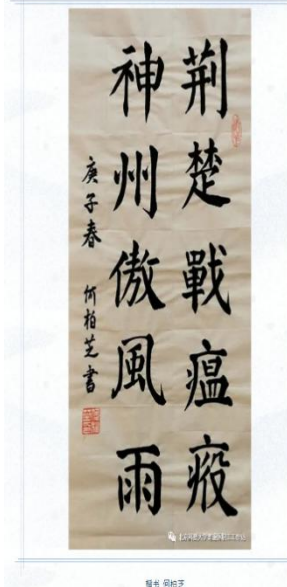 荆楚戰瘟疫
神州傲風雨
庚子春 何柏芝書
楷书 何柏芝